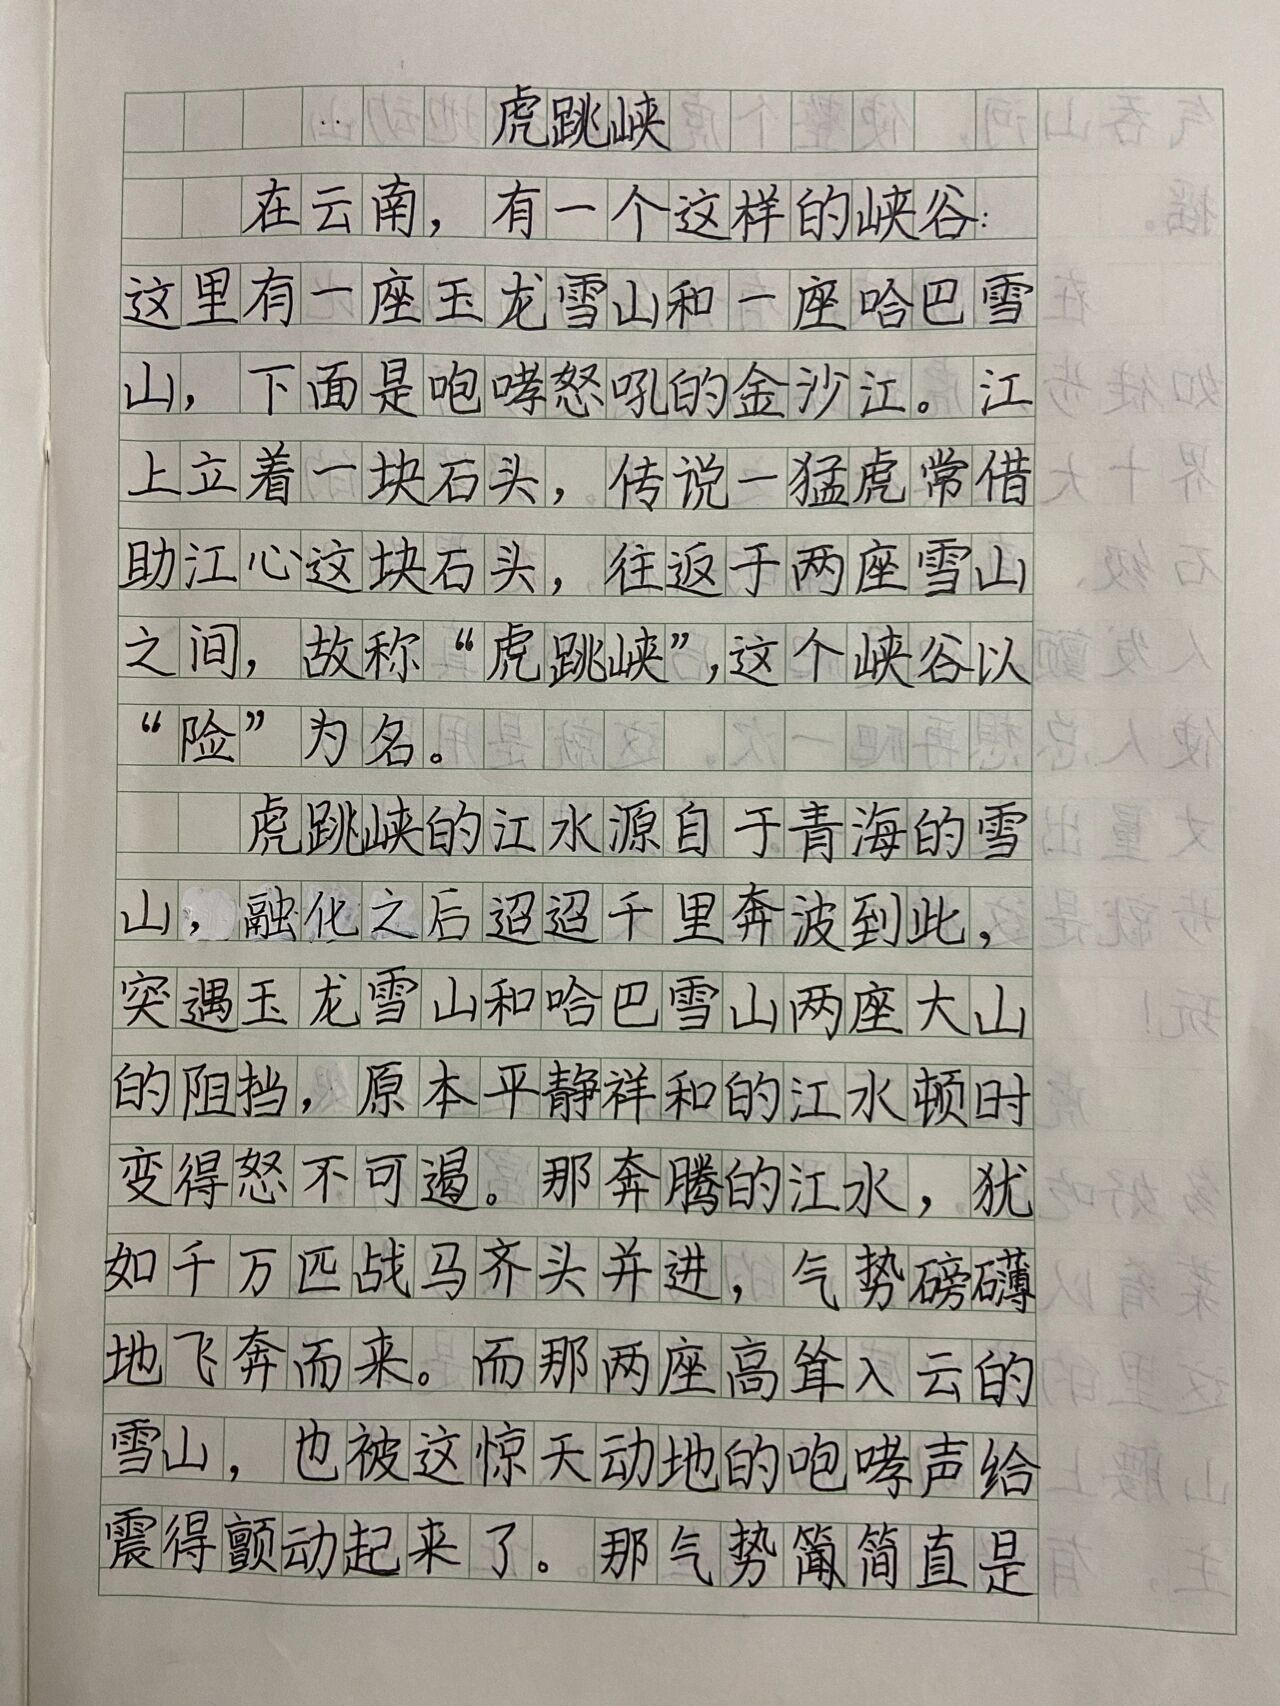 虎跳峡
在云南，有一个这样的峡谷：
这里有一座玉龙雪山和一座哈巴雪
山，下面是咆哮怒吼的金沙江。江
上立着一块石头，传说一猛虎常借
助江心这块石头，往返于两座雪山
之间，故称“虎跳峡”，这个峡谷以
“险”为名。
虎跳峡的江水源自于青海的雪
山，融化之后迢迢千里奔波到此，
突遇玉龙雪山和哈巴雪山两座大山
的阻挡，原本平静祥和的江水顿时
变得怒不可遏。那奔腾的江水，犹
如千万匹战马齐头并进，气势磅礴
地飞奔而来。而那两座高耸入云的
雪山，也被这惊天动地的咆哮声给
震得颤动起来了。那气势简直是